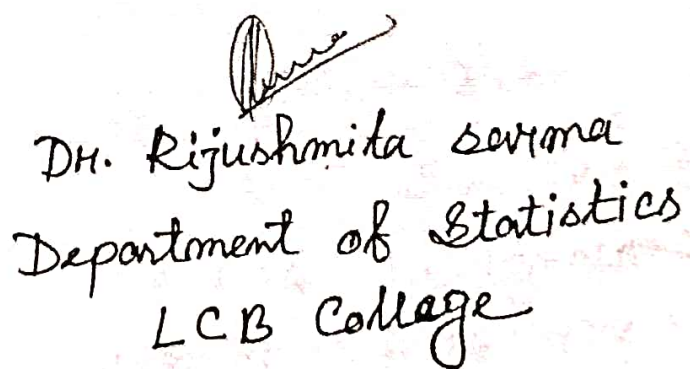 Dr. Rijushmita sarma
Department of Statistics
LCB Collage